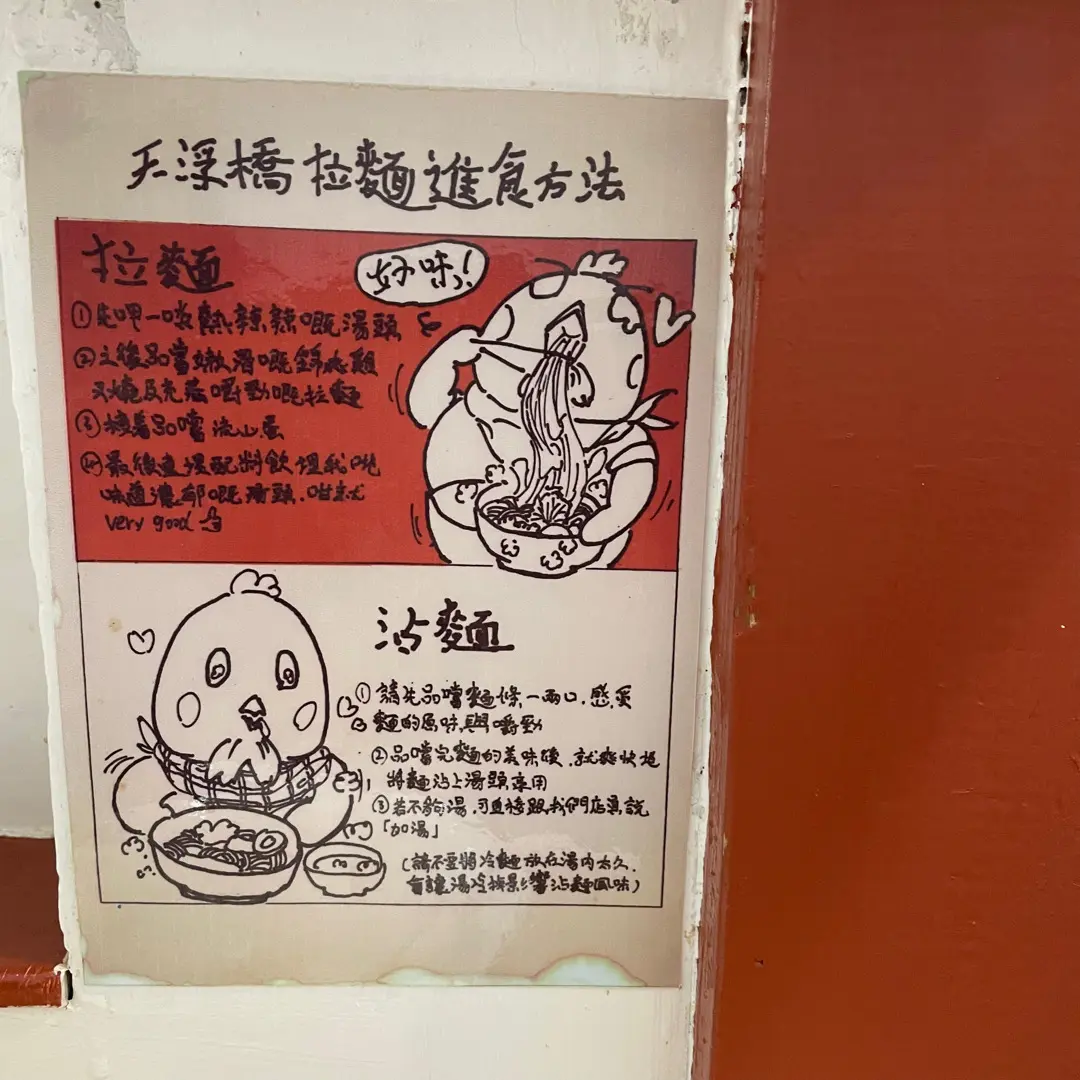 天浮橋拉麵進食方法
拉麵
好味!
①先呷一啖熱辣辣嘅湯頭
②之後品嚐嫩滑嘅錦爽雞
叉燒及充滿嚼勁嘅拉麵
③接着品嚐流心蛋
④最後直接配料飲埋我哋
味道濃郁嘅湯頭.咁就
very good
沾麵
①請先品嚐麵條一兩口.感受
麵的原味與嚼勁
②品嚐完麵的美味後.就爽快地
將麵沾上湯頭享用
③若不夠湯.可直接跟我們店員說
「加湯」
(請不要將冷麵放在湯內太久.
會讓湯冷掉影響沾麵風味)